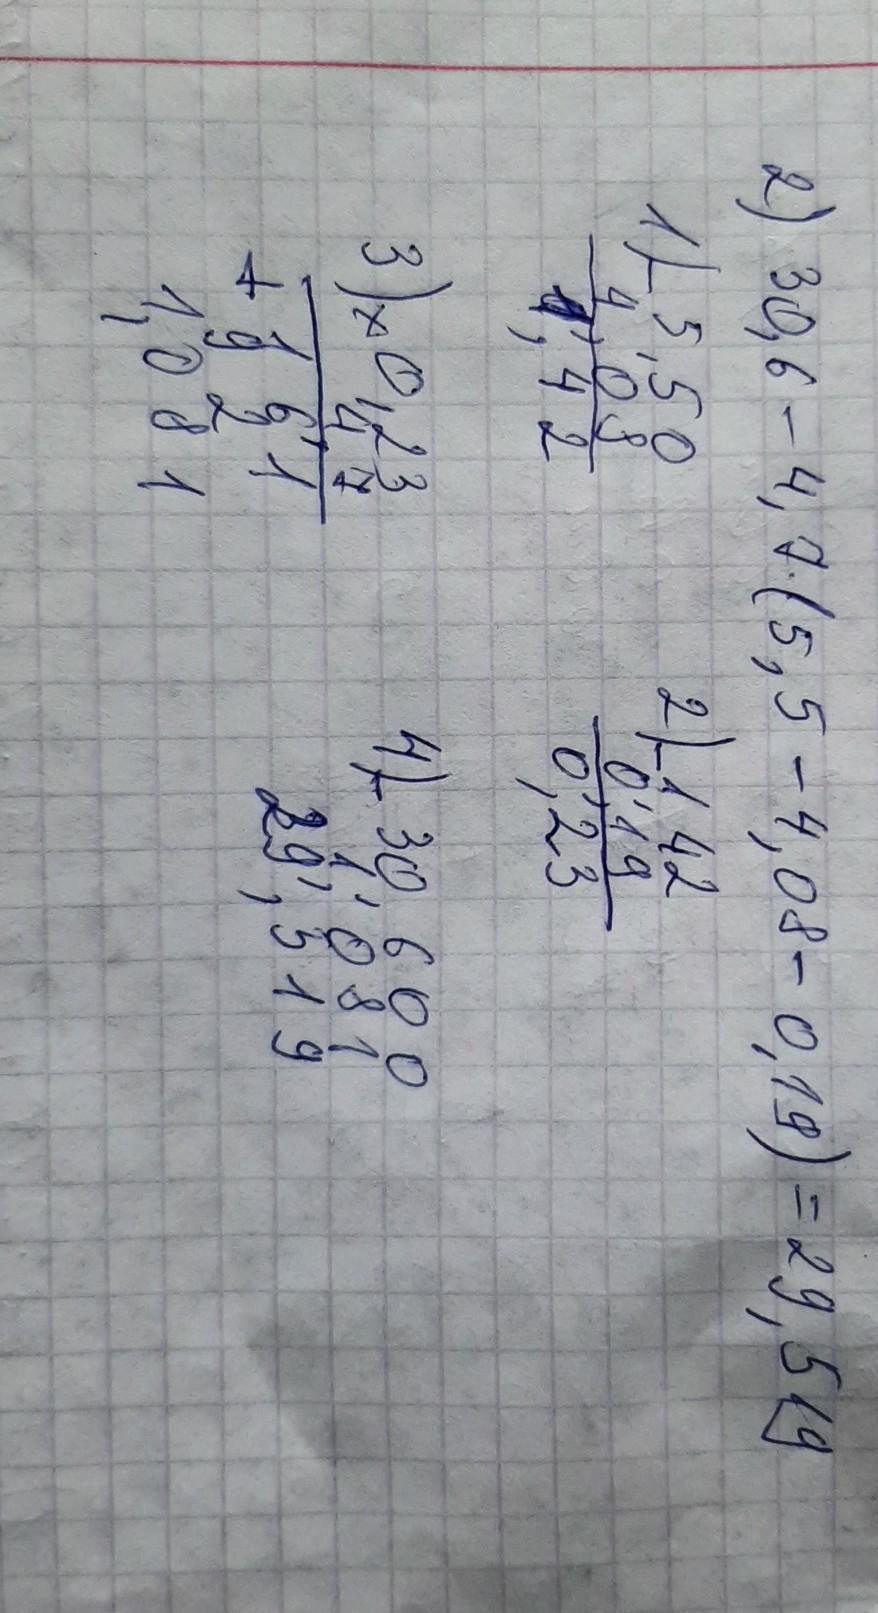 2) 30,6 - 4,7·(5,5 - 4,08 - 0,19) = 29,519
1) - 5,50
4,08
1,42
2) - 1 42
0,19
0,23
3) × 0,23
4,7
1 6 1
+ 9 2
1,0 8 1
4) - 30,6 0 0
1,0 8 1
29,5 1 9